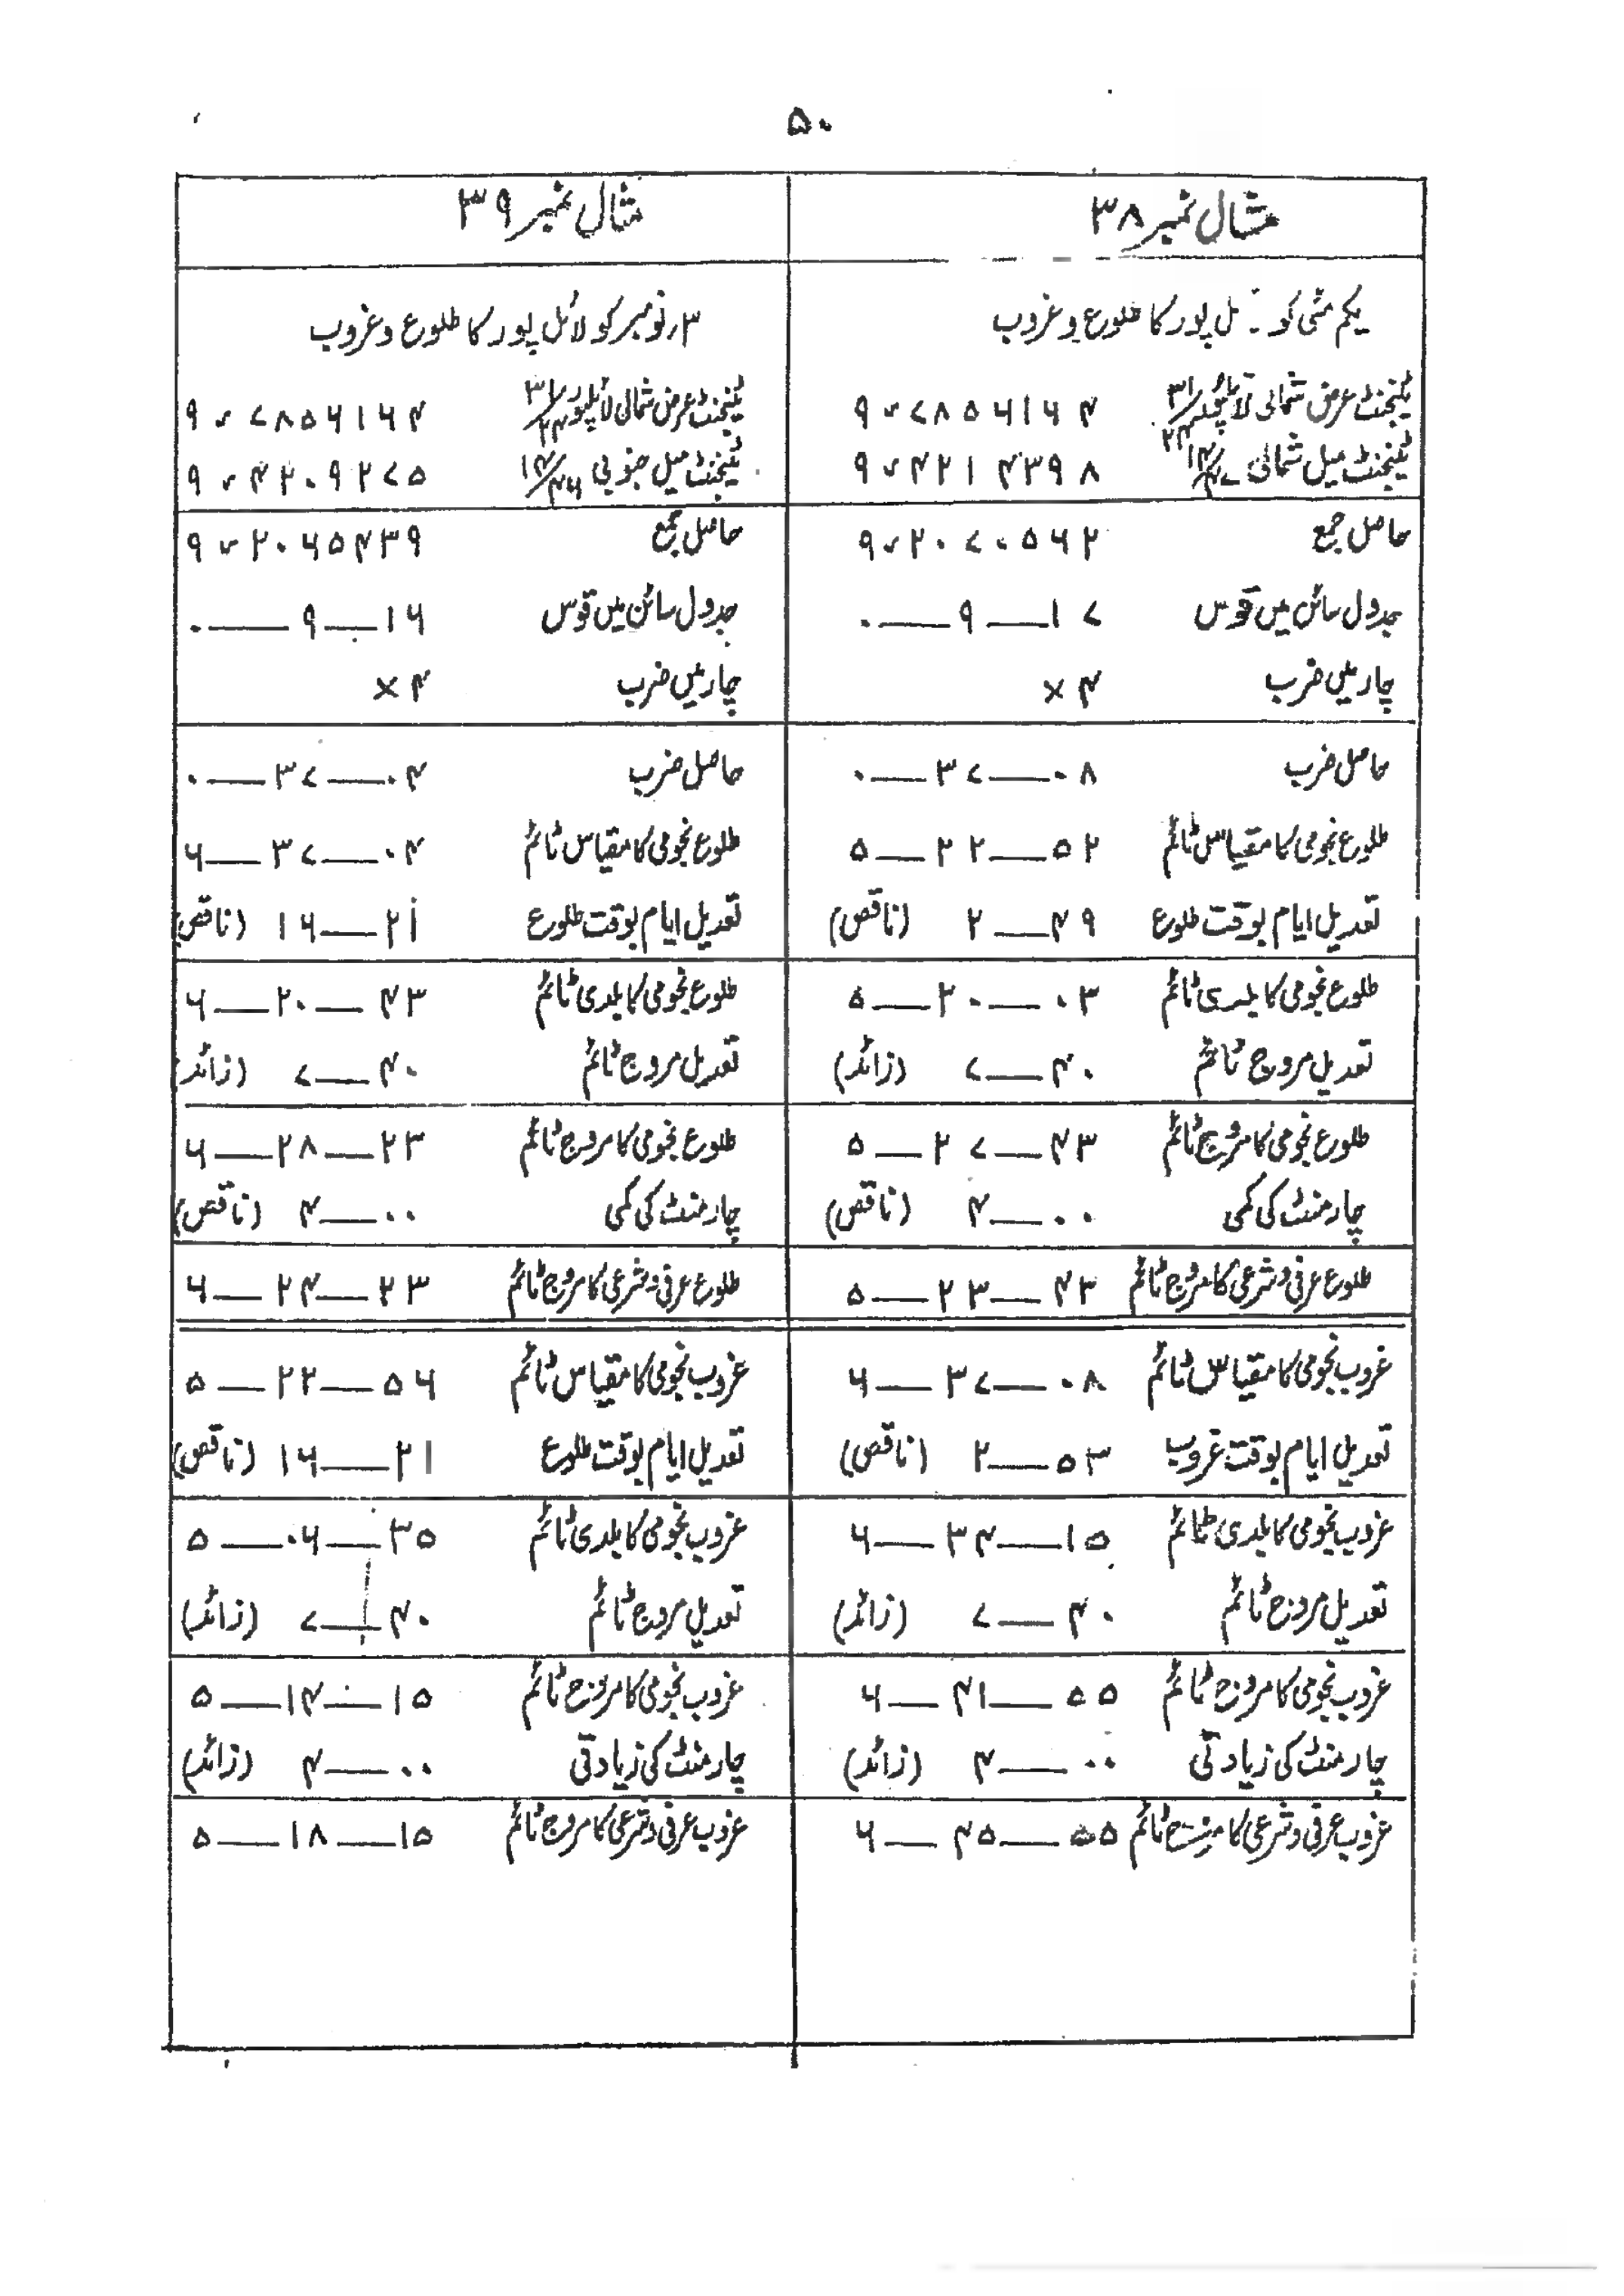 ۵۰
مثال نمبر ۳۸
یکم مئی کو ل پور کا طلوع و غروب
ٹینجنٹ عرض شمالی لائلپور ۳۱/۲۴ ۹٫۷۸۵۶۱۶۴
ٹینجنٹ میل شمالی ۱۴/۴۷ ۹٫۴۲۱۴۳۹۸
حاصل جمع ۹٫۲۰۷۰۵۶۲
جدول سائن میں قوس ۰—۹—۱۷
چار میں ضرب ×۴
حاصل ضرب ۰—۳۷—۰۸
طلوع نجومی کا مقیاس ٹائم ۵—۲۲—۵۲
تعدیل ایام بوقت طلوع ۲—۴۹ (ناقص)
طلوع نجومی کا بلدی ٹائم ۵—۲۰—۰۳
تعدیل مروج ٹائم ۷—۴۰ (زائد)
طلوع نجومی کا مروج ٹائم ۵—۲۷—۴۳
چار منٹ کی کمی ۴—۰۰ (ناقص)
طلوع عرفی و شرعی کا مروج ٹائم ۵—۲۳—۴۳
غروب نجومی کا مقیاس ٹائم ۶—۳۷—۰۸
تعدیل ایام بوقت غروب ۲—۵۳ (ناقص)
غروب نجومی کا بلدی ٹائم ۶—۳۴—۱۵
تعدیل مروج ٹائم ۷—۴۰ (زائد)
غروب نجومی کا مروج ٹائم ۶—۴۱—۵۵
چار منٹ کی زیادتی ۴—۰۰ (زائد)
غروب عرفی و شرعی کا مروج ٹائم ۶—۴۵—۵۵
مثال نمبر ۳۹
۳؍نومبر کو لائل پور کا طلوع و غروب
ٹینجنٹ عرض شمالی لائلپور ۳۱/۲۴ ۹٫۷۸۵۶۱۶۴
ٹینجنٹ میل جنوبی ۱۴/۴۶ ۹٫۴۲۰۹۲۷۵
حاصل جمع ۹٫۲۰۶۵۴۳۹
جدول سائن میں قوس ۰—۹—۱۶
چار میں ضرب ×۴
حاصل ضرب ۰—۳۷—۰۴
طلوع نجومی کا مقیاس ٹائم ۶—۳۷—۰۴
تعدیل ایام بوقت طلوع ۱۶—۲۱ (ناقص)
طلوع نجومی کا بلدی ٹائم ۶—۲۰—۴۳
تعدیل مروج ٹائم ۷—۴۰ (زائد)
طلوع نجومی کا مروج ٹائم ۶—۲۸—۲۳
چار منٹ کی کمی ۴—۰۰ (ناقص)
طلوع عرفی و شرعی کا مروج ٹائم ۶—۲۴—۲۳
غروب نجومی کا مقیاس ٹائم ۵—۲۲—۵۶
تعدیل ایام بوقت طلوع ۱۶—۲۱ (ناقص)
غروب نجومی کا بلدی ٹائم ۵—۰۶—۳۵
تعدیل مروج ٹائم ۷—۴۰ (زائد)
غروب نجومی کا مروج ٹائم ۵—۱۴—۱۵
چار منٹ کی زیادتی ۴—۰۰ (زائد)
غروب عرفی و شرعی کا مروج ٹائم ۵—۱۸—۱۵